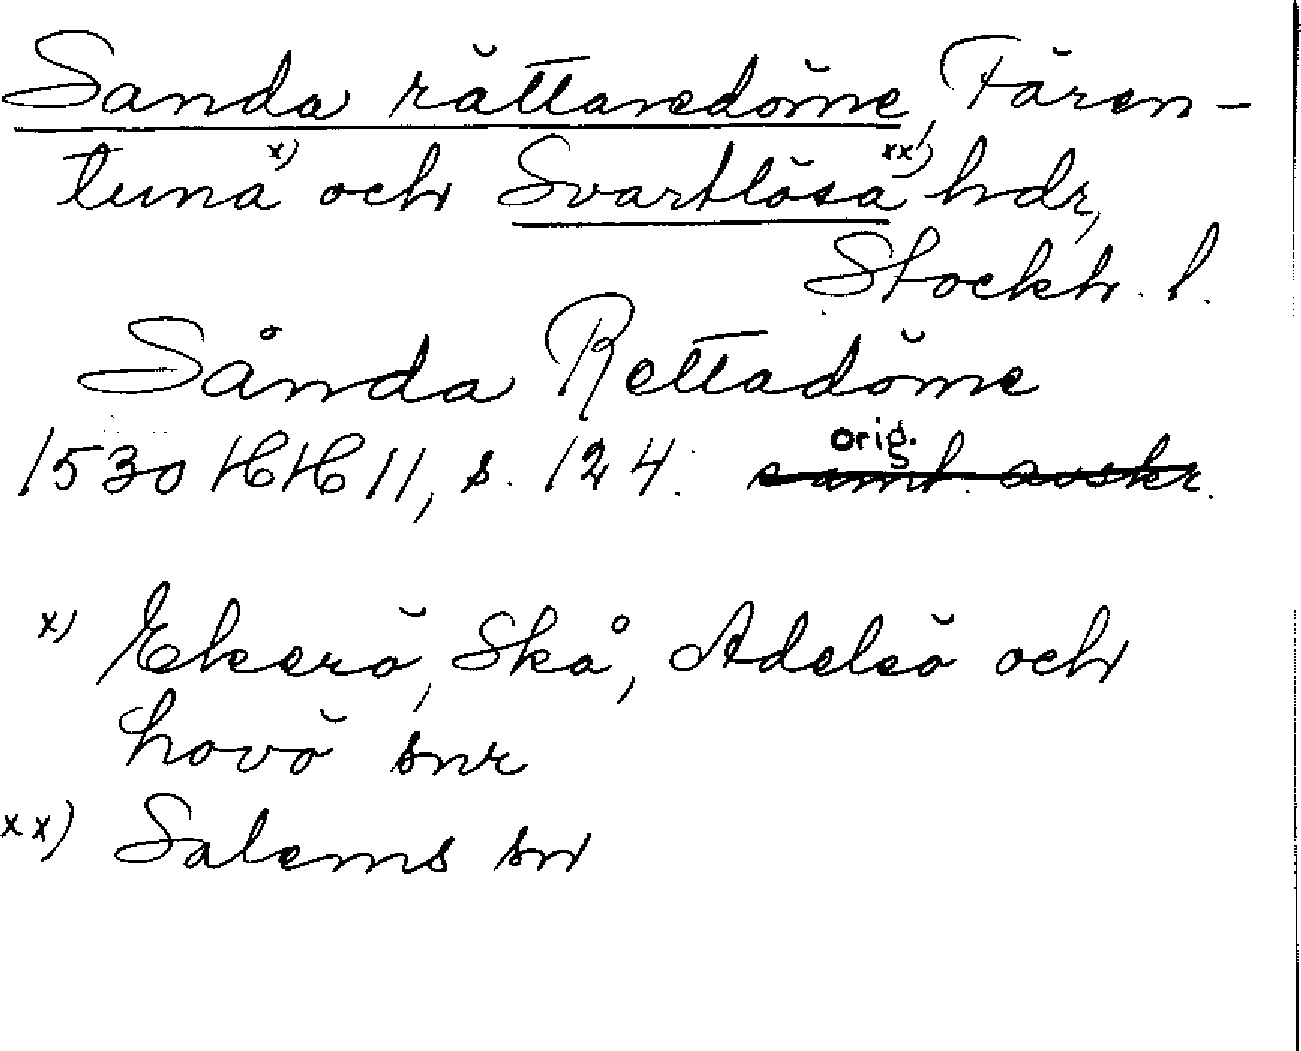 Sanda rättaredöme, Fären-
tuna x) och Svartlösa xx) hdr,
Stockh. l.
Sånda Rettadöme
1530 HH 11, s. 124. orig. samt. avskr.
x) Ekerö, Skå, Adelsö och
hovö snr
xx) Salems sn